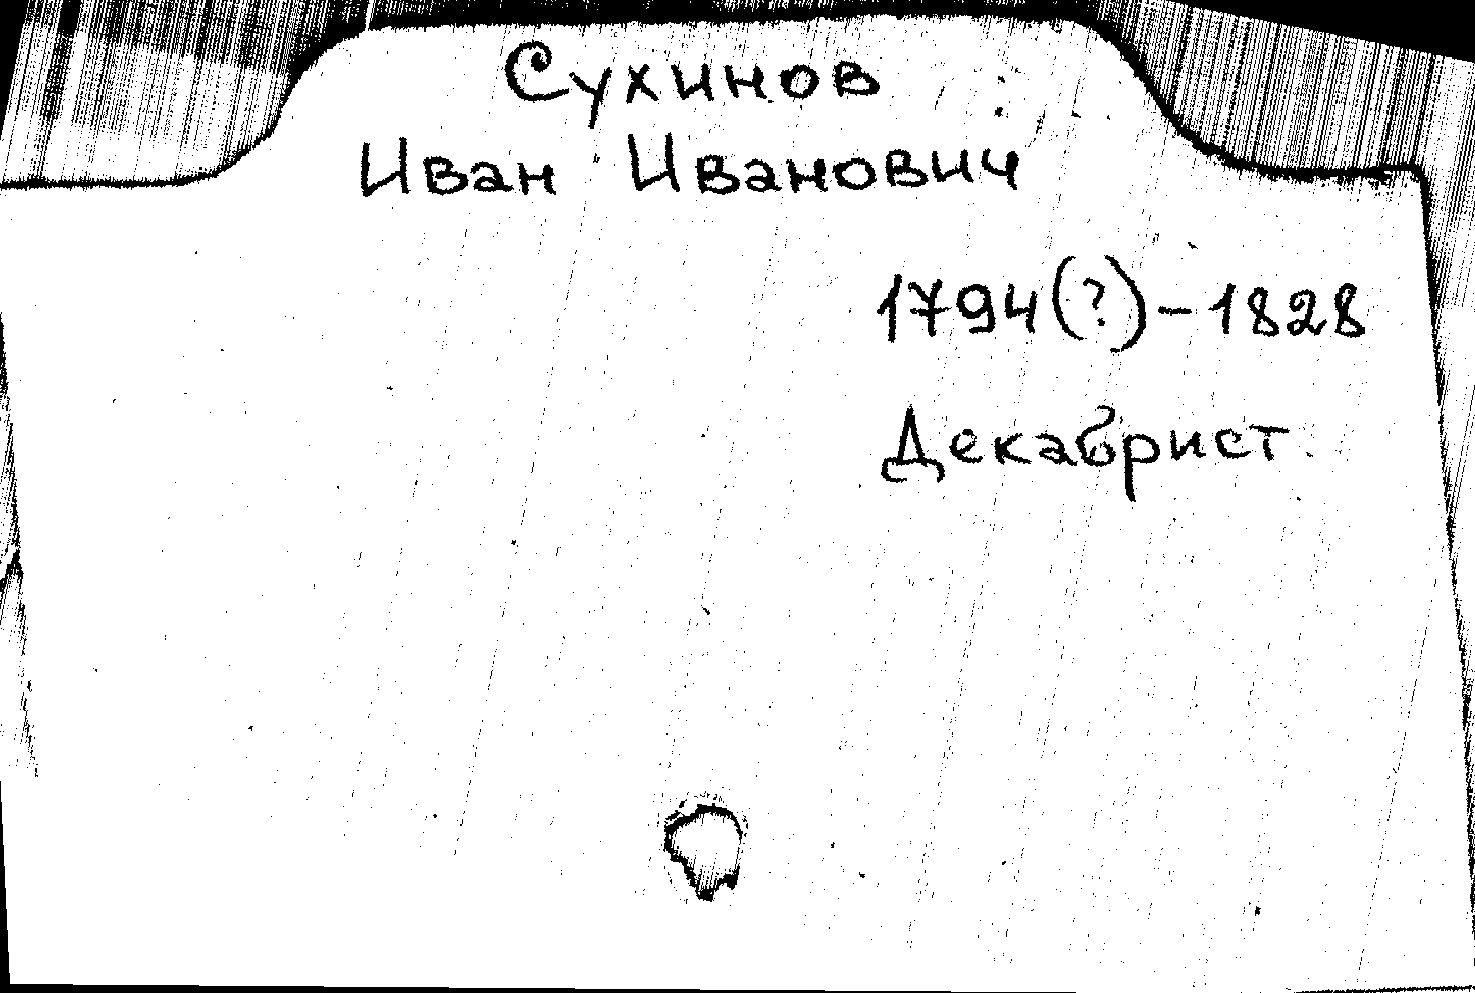 Сухинов
Иван Иванович
1794(?)-1828
Декабрист